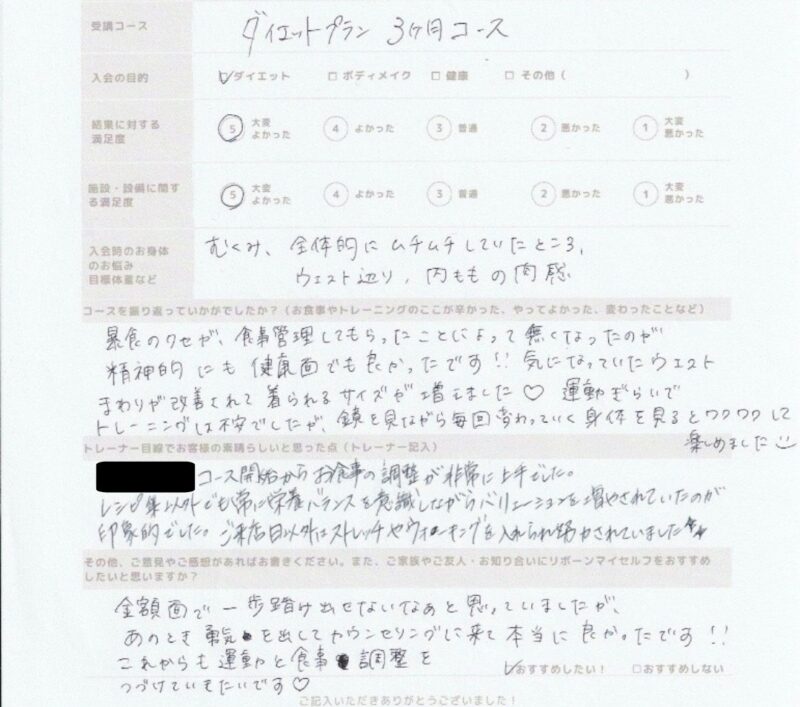 受講コース ダイエットプラン 3ヶ月コース
入会の目的 ☑ダイエット □ボディメイク □健康 □その他( )
結果に対する満足度 5 大変よかった 4 よかった 3 普通 2 悪かった 1 大変悪かった
施設・設備に関する満足度 5 大変よかった 4 よかった 3 普通 2 悪かった 1 大変悪かった
入会時のお身体のお悩み 目標体重など
むくみ、全体的にムチムチしていたところ、
ウエスト辺り、内ももの肉感
コースを振り返っていかがでしたか?(お食事やトレーニングのここが辛かった、やってよかった、変わったことなど)
暴食のクセが、食事管理してもらったことによって無くなったのが
精神的にも健康面でも良かったです!! 気になっていたウエスト
まわりが改善されて着られるサイズが増えました♡ 運動ぎらいで
トレーニングは不安でしたが、鏡を見ながら毎回変わっていく身体を見るとワクワクして
楽しめました
トレーナー目線でお客様の素晴らしいと思った点(トレーナー記入)
コース開始からお食事の調整が非常に上手でした。
レシピ集以外でも常に栄養バランスを意識しながらバリエーションを増やされていたのが
印象的でした。ご来店日以外はストレッチやウォーキングを入れられ努力されていました
その他、ご意見やご感想があればお書きください。また、ご家族やご友人・お知り合いにリボーンマイセルフをおすすめ
したいと思いますか?
金額面で一歩踏け出せないなぁと思っていましたが、
あのとき勇気を出してカウンセリングに来て本当に良かったです!!
これからも運動と食事調整を
つづけていきたいです♡
☑おすすめしたい! □おすすめしない
ご記入いただきありがとうございました!